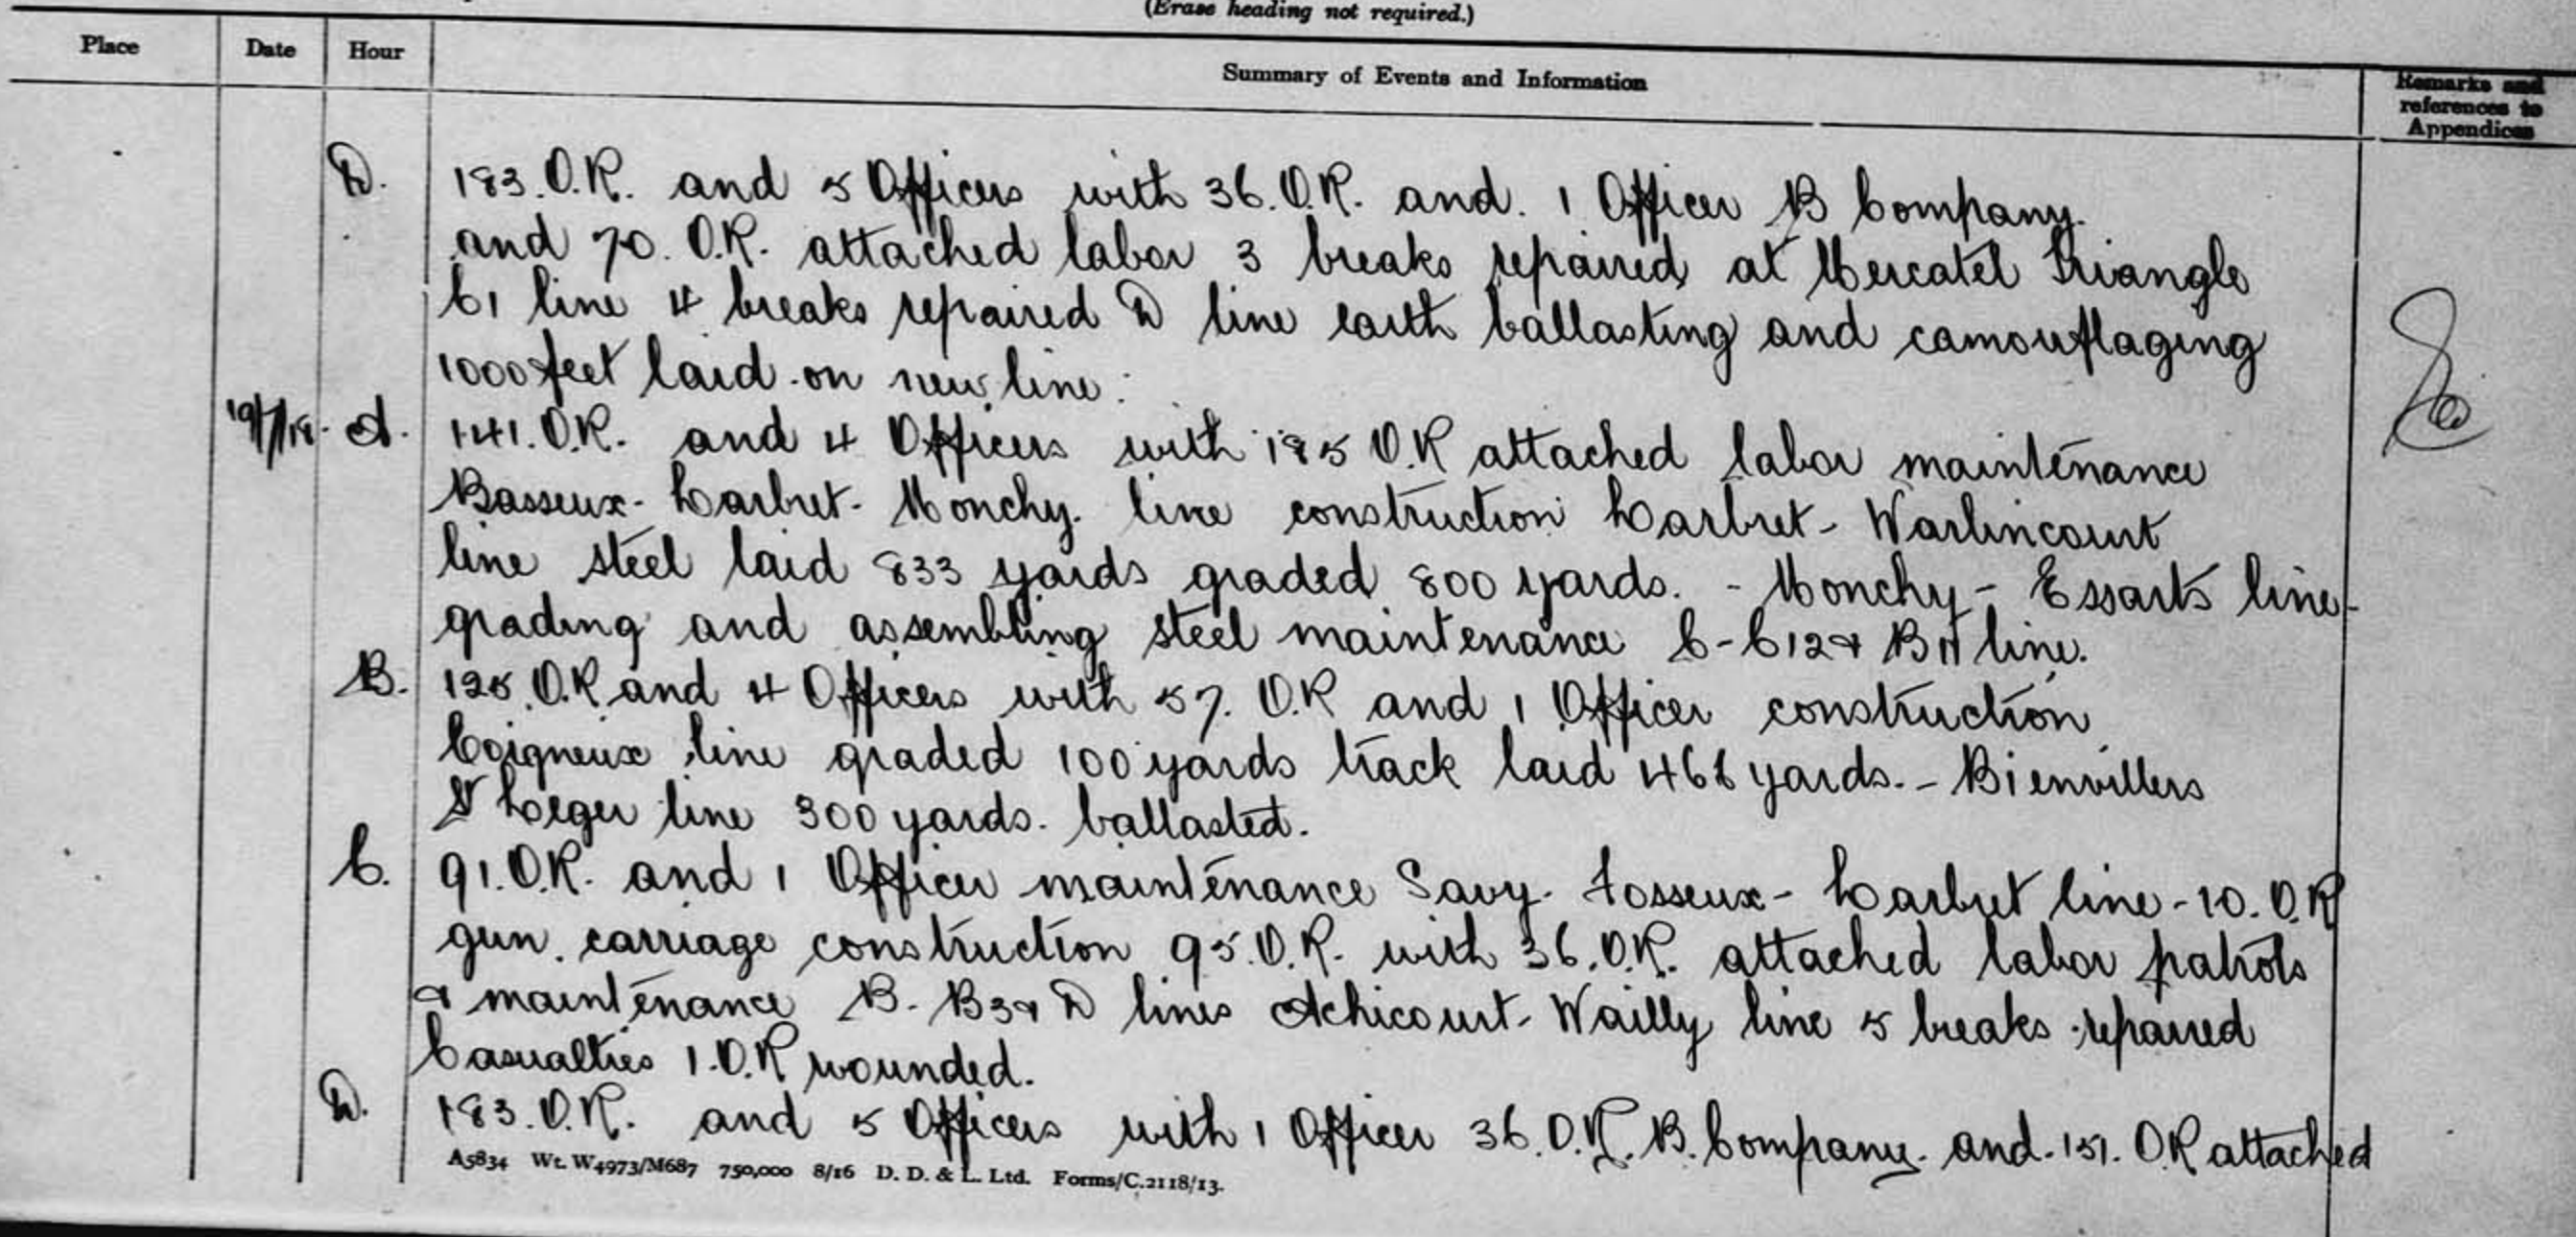 (Erase heading not required.)
Place Date Hour Summary of Events and Information Remarks and references to Appendices
D. 183. O.R. and 5 Officers with 36. O.R. and. 1 Officer B Company.
and 70. O.R. attached labor 3 breaks repaired at Mercatel Triangle
C1 line 4 breaks repaired D line earth ballasting and camouflaging
1000 feet laid on new line.
19/7/18. A. 141. O.R. and 4 Officers with 185 O.R attached labor maintenance
Basseux - Larbret - Monchy. line construction Larbret - Warlincourt
line steel laid 833 yards graded 800 yards. - Monchy - Essarts line -
grading and assembling steel maintenance C - C12 & B11 line.
B. 125. O.R and 4 Officers with 57. O.R and 1 Officer construction
Coigneux line graded 100 yards track laid 466 yards. - Bienvillers
St Leger line 300 yards. ballasted.
C. 91. O.R. and 1 Officer maintenance Savy - Fosseux - Larbret line - 10. O.R
gun. carriage construction 95. O.R. with 36. O.R. attached labor patrols
& maintenance B - B3 & D lines Achicourt - Wailly line 5 breaks repaired
Casualties 1. O.R wounded.
D. 183. O.R. and 5 Officers with 1 Officer 36. O.R. B. Company. and. 151. O.R attached
A5834 Wt. W4973/M687 750,000 8/16 D. D. & L. Ltd. Forms/C.2118/13.